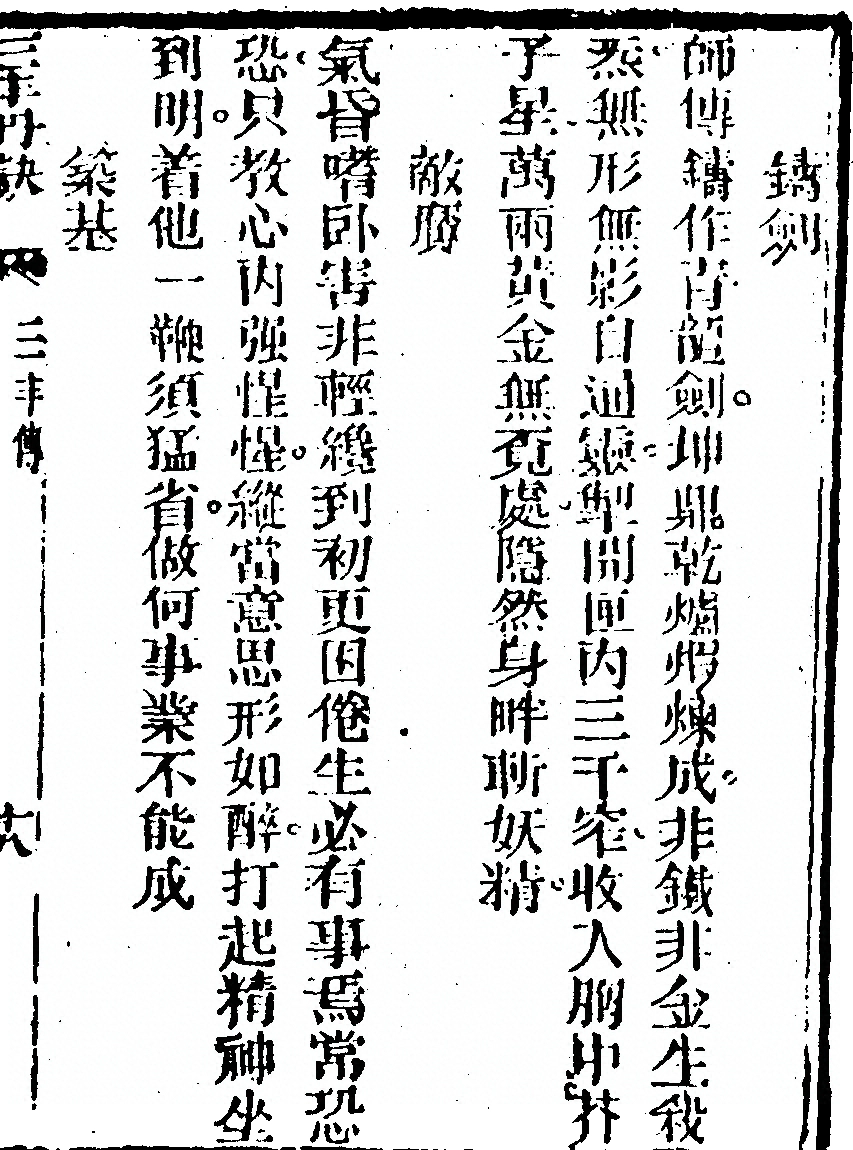 鑄劍
師傳鑄作青龍劍。坤鼎乾爐煆煉成。非鐵非金生殺
炁。無形無影自通靈。掣開匣內三千窄。收入胸中芥
子星。萬兩黃金無覓處。隱然身畔斬妖精。
敵魔
氣昏嗜卧害非輕纔到初更困倦生必有事焉常恐
恐。只教心內强惺惺。縱當意思形如醉。打起精神坐
到明。着他一鞭須猛省。做何事業不能成
築基
三丰丹訣 三丰傳 十八